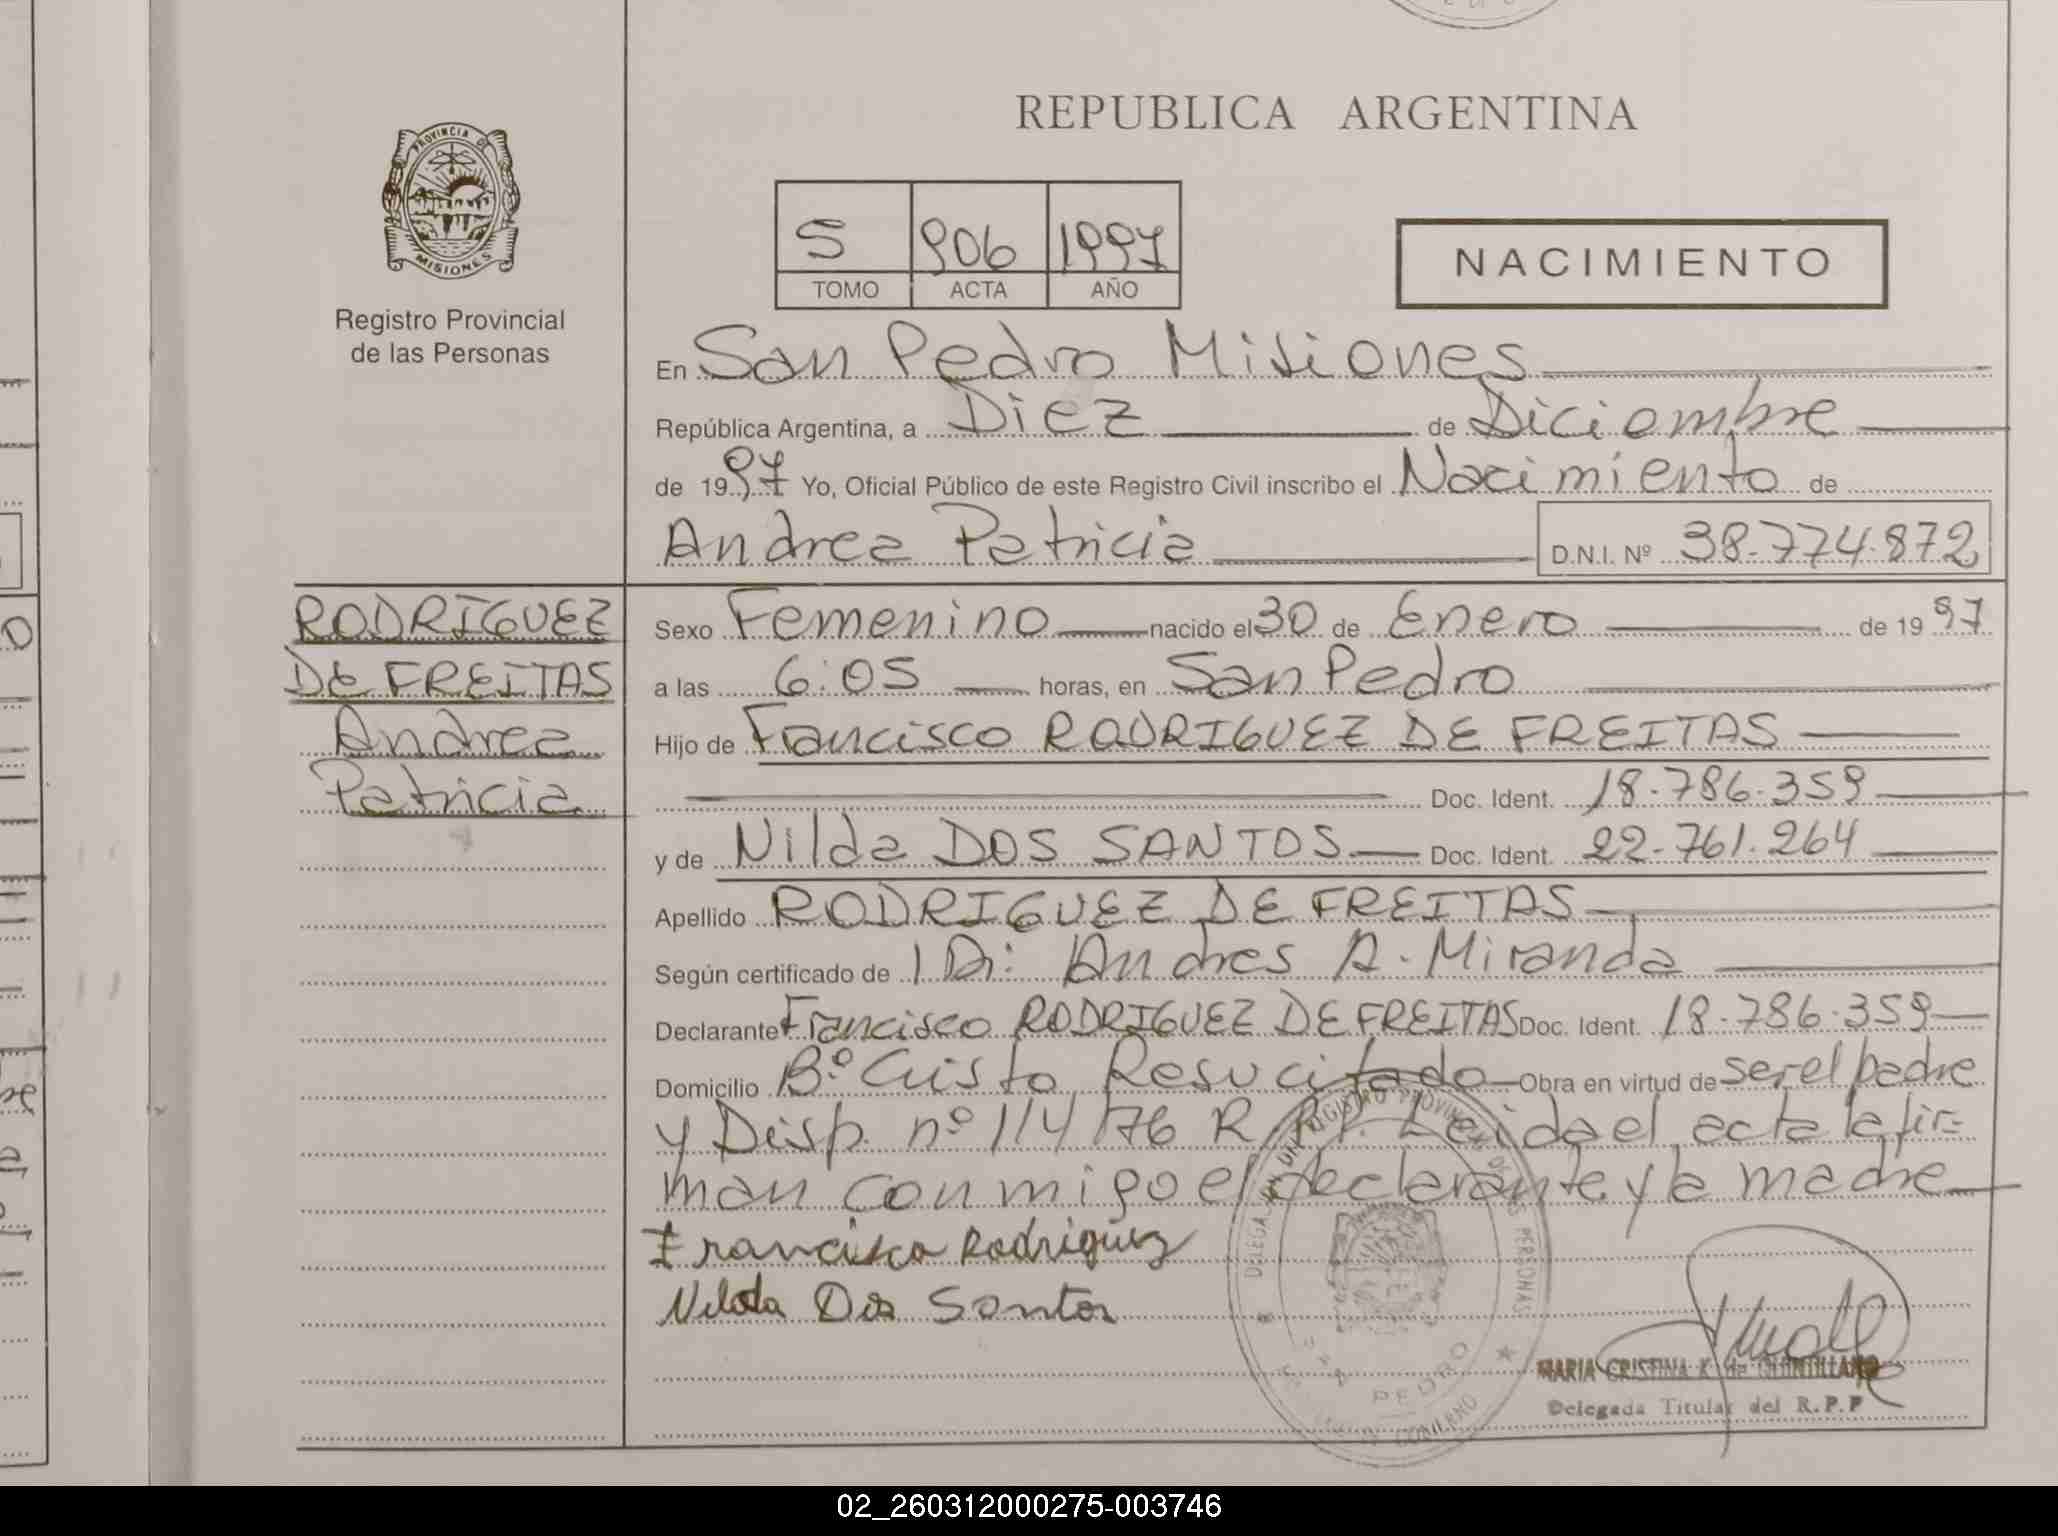 REPUBLICA ARGENTINA
PROVINCIA DE
MISIONES
Registro Provincial
de las Personas
5 906 1997
TOMO ACTA AÑO
NACIMIENTO
En San Pedro Misiones
República Argentina, a Diez de Diciembre
de 1997 Yo, Oficial Público de este Registro Civil inscribo el Nacimiento de
Andrea Patricia D.N.I. Nº 38.774.872
RODRIGUEZ
DE FREITAS
Andrea
Patricia
Sexo Femenino nacido el 30 de Enero de 1997
a las 6:05 horas, en San Pedro
Hijo de Francisco RODRIGUEZ DE FREITAS
Doc. Ident. 18.786.359
y de Nilda DOS SANTOS Doc. Ident. 22.761.264
Apellido RODRIGUEZ DE FREITAS
Según certificado de Andres A. Miranda
Declarante Francisco RODRIGUEZ DE FREITAS Doc. Ident. 18.786.359
Domicilio Bº Cristo Resucitado Obra en virtud de ser el padre
y Disp. nº 114/76 R.P.P. Leida el acta la fir=
man conmigo el declarante y la madre
Francisco Rodriguez
Nilda Dos Santos
REGISTRO PROVINCIAL DE LAS PERSONAS
SAN PEDRO
MARIA CRISTINA K de QUINTILLANO
Delegada Titular del R.P.P
02_260312000275-003746